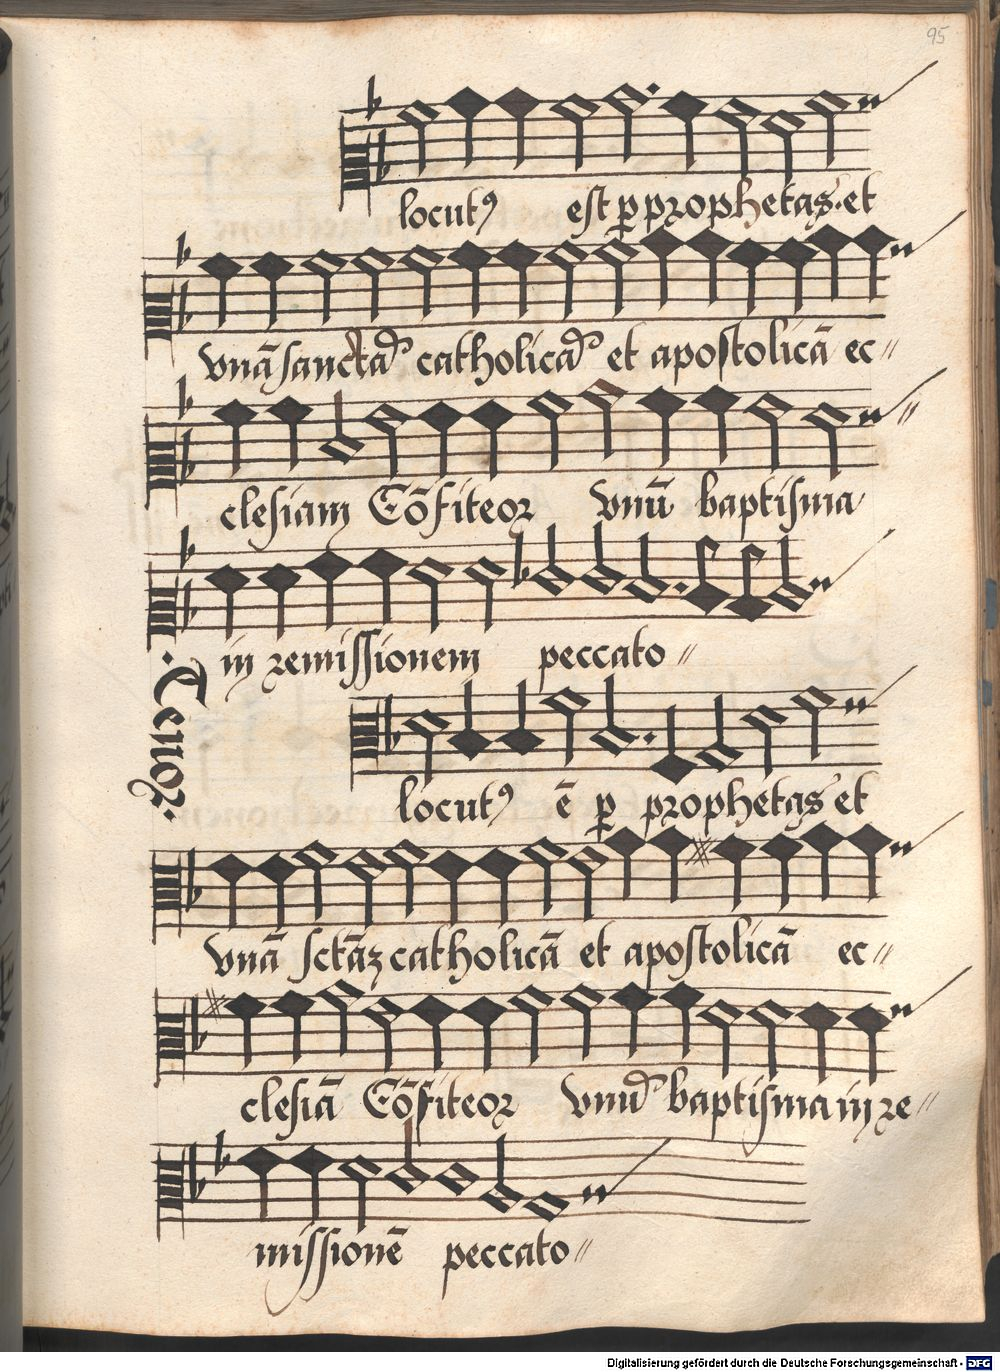 95
locutꝰ est ꝑ prophetas. et
vnā sanctā catholicā et apostolicā ec〃
clesiam Cōfiteor vnū baptisma
in remissionem peccato〃
Tenor.
locutꝰ ē ꝑ prophetas et
vnā sctāz catholicā et apostolicā ec〃
clesiā Cōfiteor vnū baptisma in re〃
missionē peccato〃
Digitalisierung gefördert durch die Deutsche Forschungsgemeinschaft - DFG